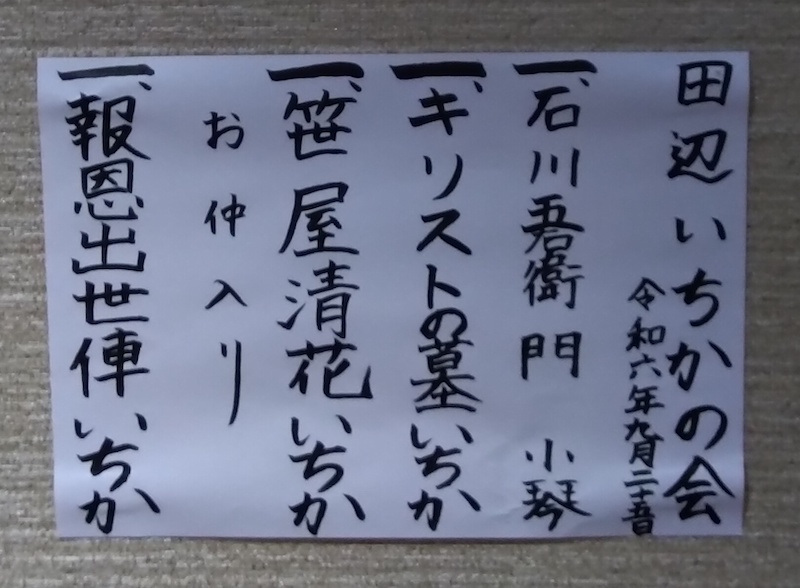 田辺いちかの会
令和六年九月二十五日
一、石川吾衛門 小琴
一、キリストの墓 いちか
一、笹屋清花 いちか
お仲入り
一、報恩出世俥 いちか